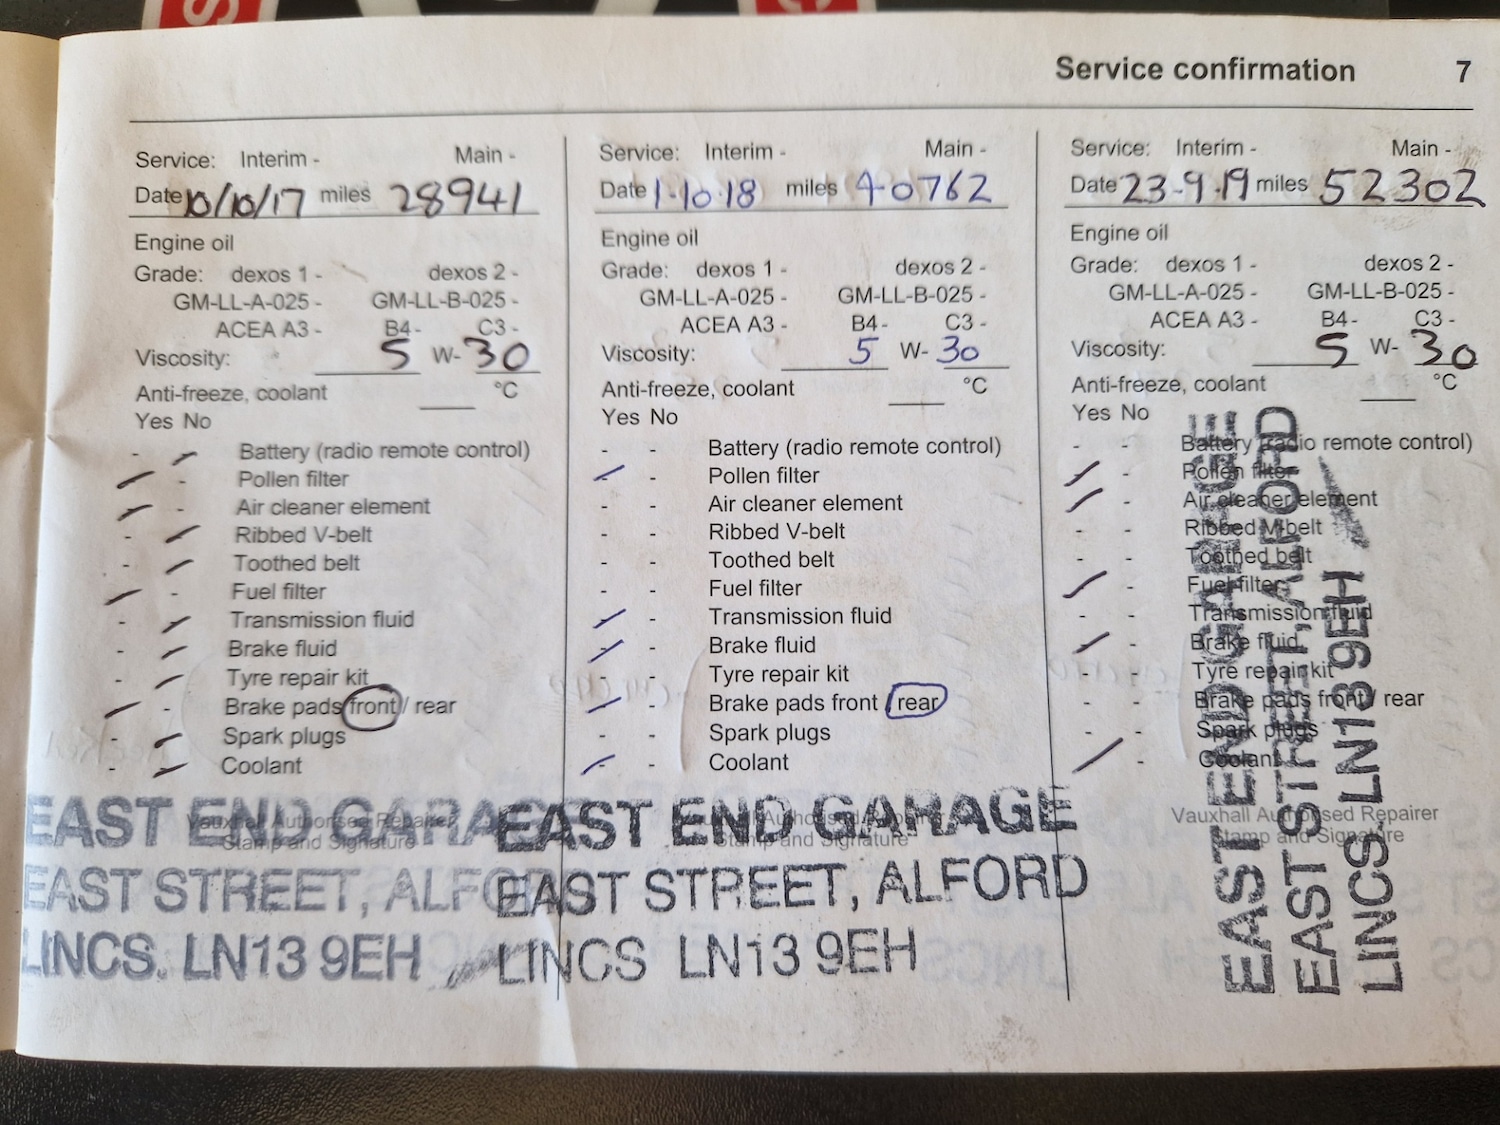 Service confirmation 7
Service: Interim - Main -
Date 10/10/17 miles 28941
Engine oil
Grade: dexos 1 - dexos 2 -
GM-LL-A-025 - GM-LL-B-025 -
ACEA A3 - B4 - C3 -
Viscosity: 5 W- 30
Anti-freeze, coolant °C
Yes No
- - Battery (radio remote control)
- - Pollen filter
- - Air cleaner element
- - Ribbed V-belt
- - Toothed belt
- - Fuel filter
- - Transmission fluid
- - Brake fluid
- - Tyre repair kit
- - Brake pads front / rear
- - Spark plugs
- - Coolant
Vauxhall Authorised Repairer
Stamp and Signature
EAST END GARA
EAST STREET, ALFO
LINCS. LN13 9EH
Service: Interim - Main -
Date 1-10-18 miles 40762
Engine oil
Grade: dexos 1 - dexos 2 -
GM-LL-A-025 - GM-LL-B-025 -
ACEA A3 - B4 - C3 -
Viscosity: 5 W- 30
Anti-freeze, coolant °C
Yes No
- - Battery (radio remote control)
- - Pollen filter
- - Air cleaner element
- - Ribbed V-belt
- - Toothed belt
- - Fuel filter
- - Transmission fluid
- - Brake fluid
- - Tyre repair kit
- - Brake pads front / rear
- - Spark plugs
- - Coolant
Stamp and Signature
EAST END GARAGE
EAST STREET, ALFORD
LINCS LN13 9EH
Service: Interim - Main -
Date 23-9-19 miles 52302
Engine oil
Grade: dexos 1 - dexos 2 -
GM-LL-A-025 - GM-LL-B-025 -
ACEA A3 - B4 - C3 -
Viscosity: 5 W- 30
Anti-freeze, coolant °C
Yes No
- - Battery (radio remote control)
- - Pollen filter
- - Air cleaner element
- - Ribbed V-belt
- - Toothed belt
- - Fuel filter
- - Transmission fluid
- - Brake fluid
- - Tyre repair kit
- - Brake pads front / rear
- - Spark plugs
- - Coolant
Vauxhall Authorised Repairer
Stamp and Signature
EAST END GARAGE
EAST STREET, ALFORD
LINCS. LN13 9EH